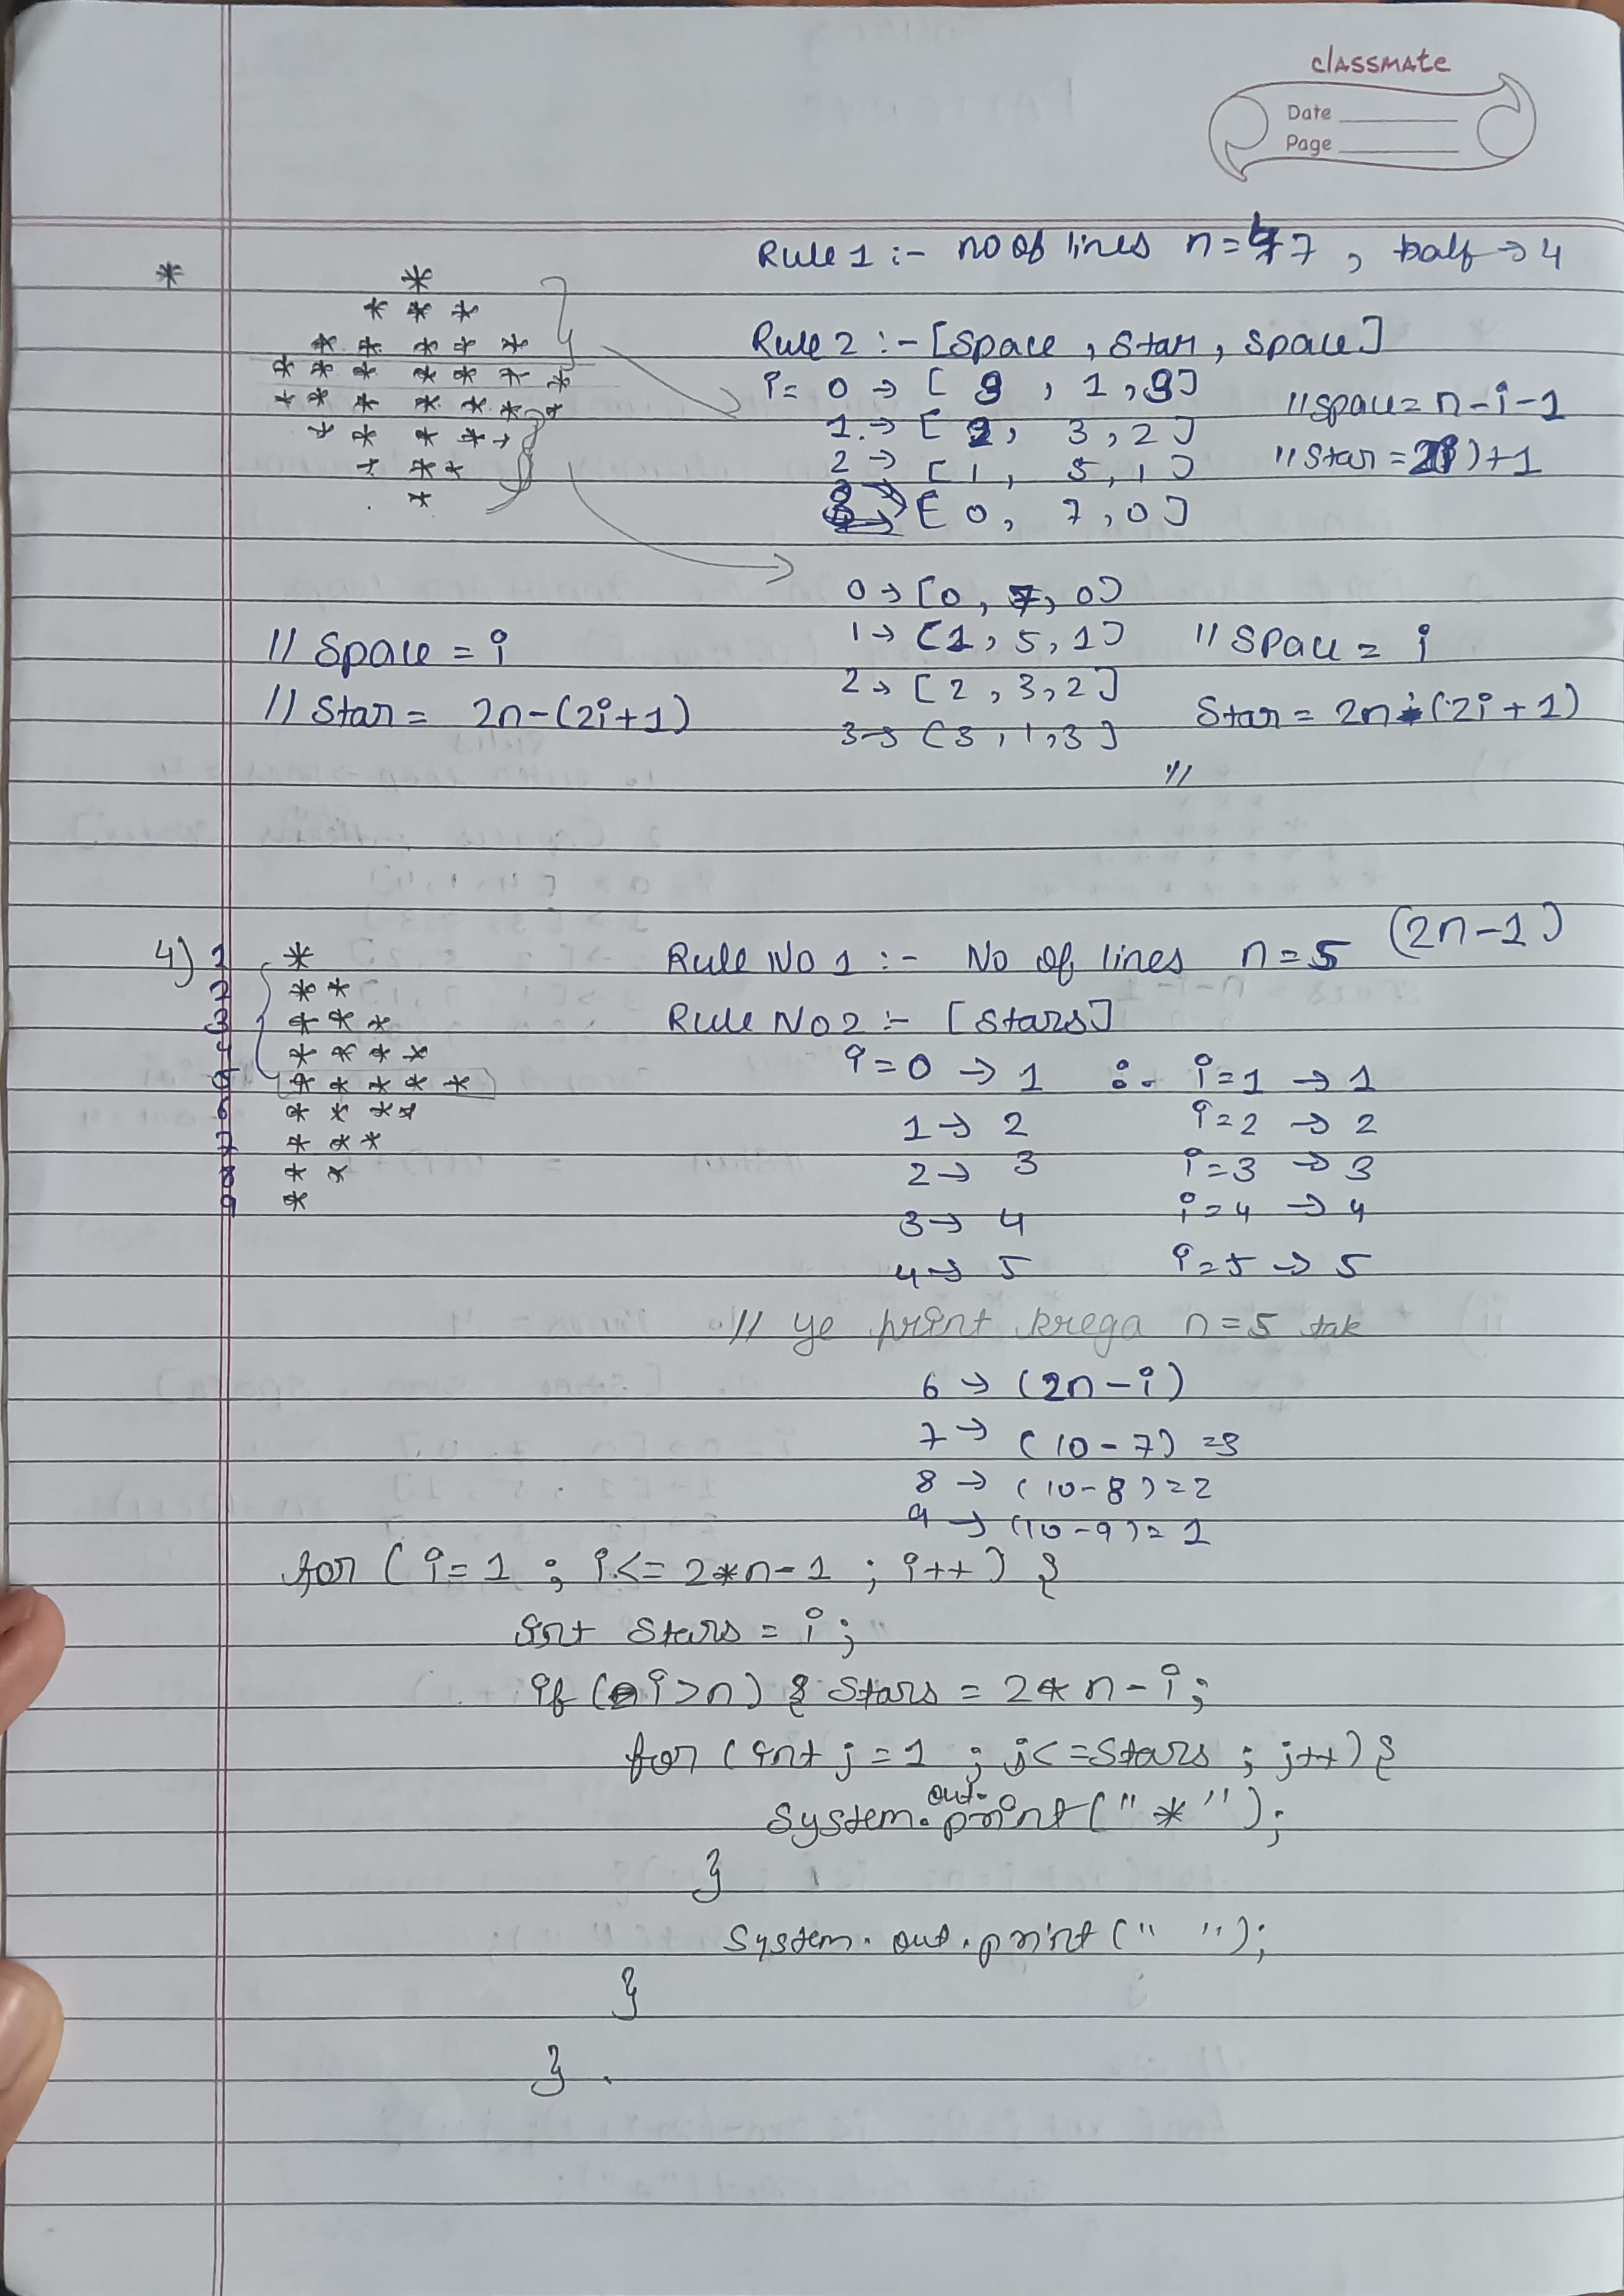 classmate
Date
Page
Rule 1 :- no of lines n = 7 , half → 4
*
*
* * *
* * * * *
* * * * * * *
* * * * * * *
* * * * *
* * *
*
Rule 2 :- [Space , Star , Space]
i = 0 → [ 3 , 1 , 3]
1 → [ 2, 3 , 2 ]
2 → [ 1 , 5 , 1 ]
3 → [ 0 , 7 , 0 ]
// space = n - i - 1
// Star = 2(i) + 1
0 → [0 , 7 , 0]
1 → [1 , 5 , 1]
2 → [2 , 3 , 2]
3 → [3 , 1 , 3]
// Space = i
// Star = 2n - (2i + 1)
// Space = i
Star = 2n - (2i + 1)
//
4)
1 *
2 * *
3 * * *
4 * * * *
5 * * * * *
6 * * * *
7 * * *
8 * *
9 *
Rule No 1 :- No of lines n = 5 (2n - 1)
Rule No 2 :- [Stars]
i = 0 → 1 ∴ i = 1 → 1
1 → 2 i = 2 → 2
2 → 3 i = 3 → 3
3 → 4 i = 4 → 4
4 → 5 i = 5 → 5
// ye print krega n = 5 tak
6 → (2n - i)
7 → (10 - 7) = 3
8 → (10 - 8) = 2
9 → (10 - 9) = 1
for ( i = 1 ; i <= 2*n - 1 ; i++ ) {
int Stars = i ;
if ( i > n ) { Stars = 2 * n - i ;
for ( int j = 1 ; j <= Stars ; j++ ) {
System.out.print(" * ");
}
System.out.print(" ");
}
} .